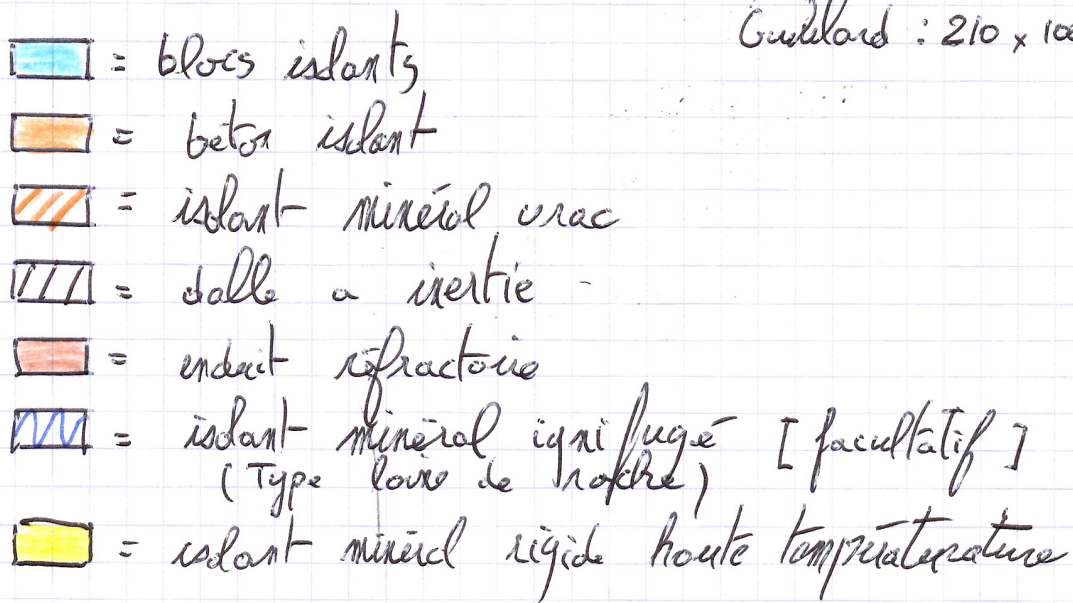 : 210 x 100
= blocs isolants
= beton isolant
= isolant minéral vrac
= dalle a inertie
= enduit réfractoire
= isolant minéral ignifugé [facultatif]
(Type laine de roche)
= isolant minéral rigide haute tempiratuature